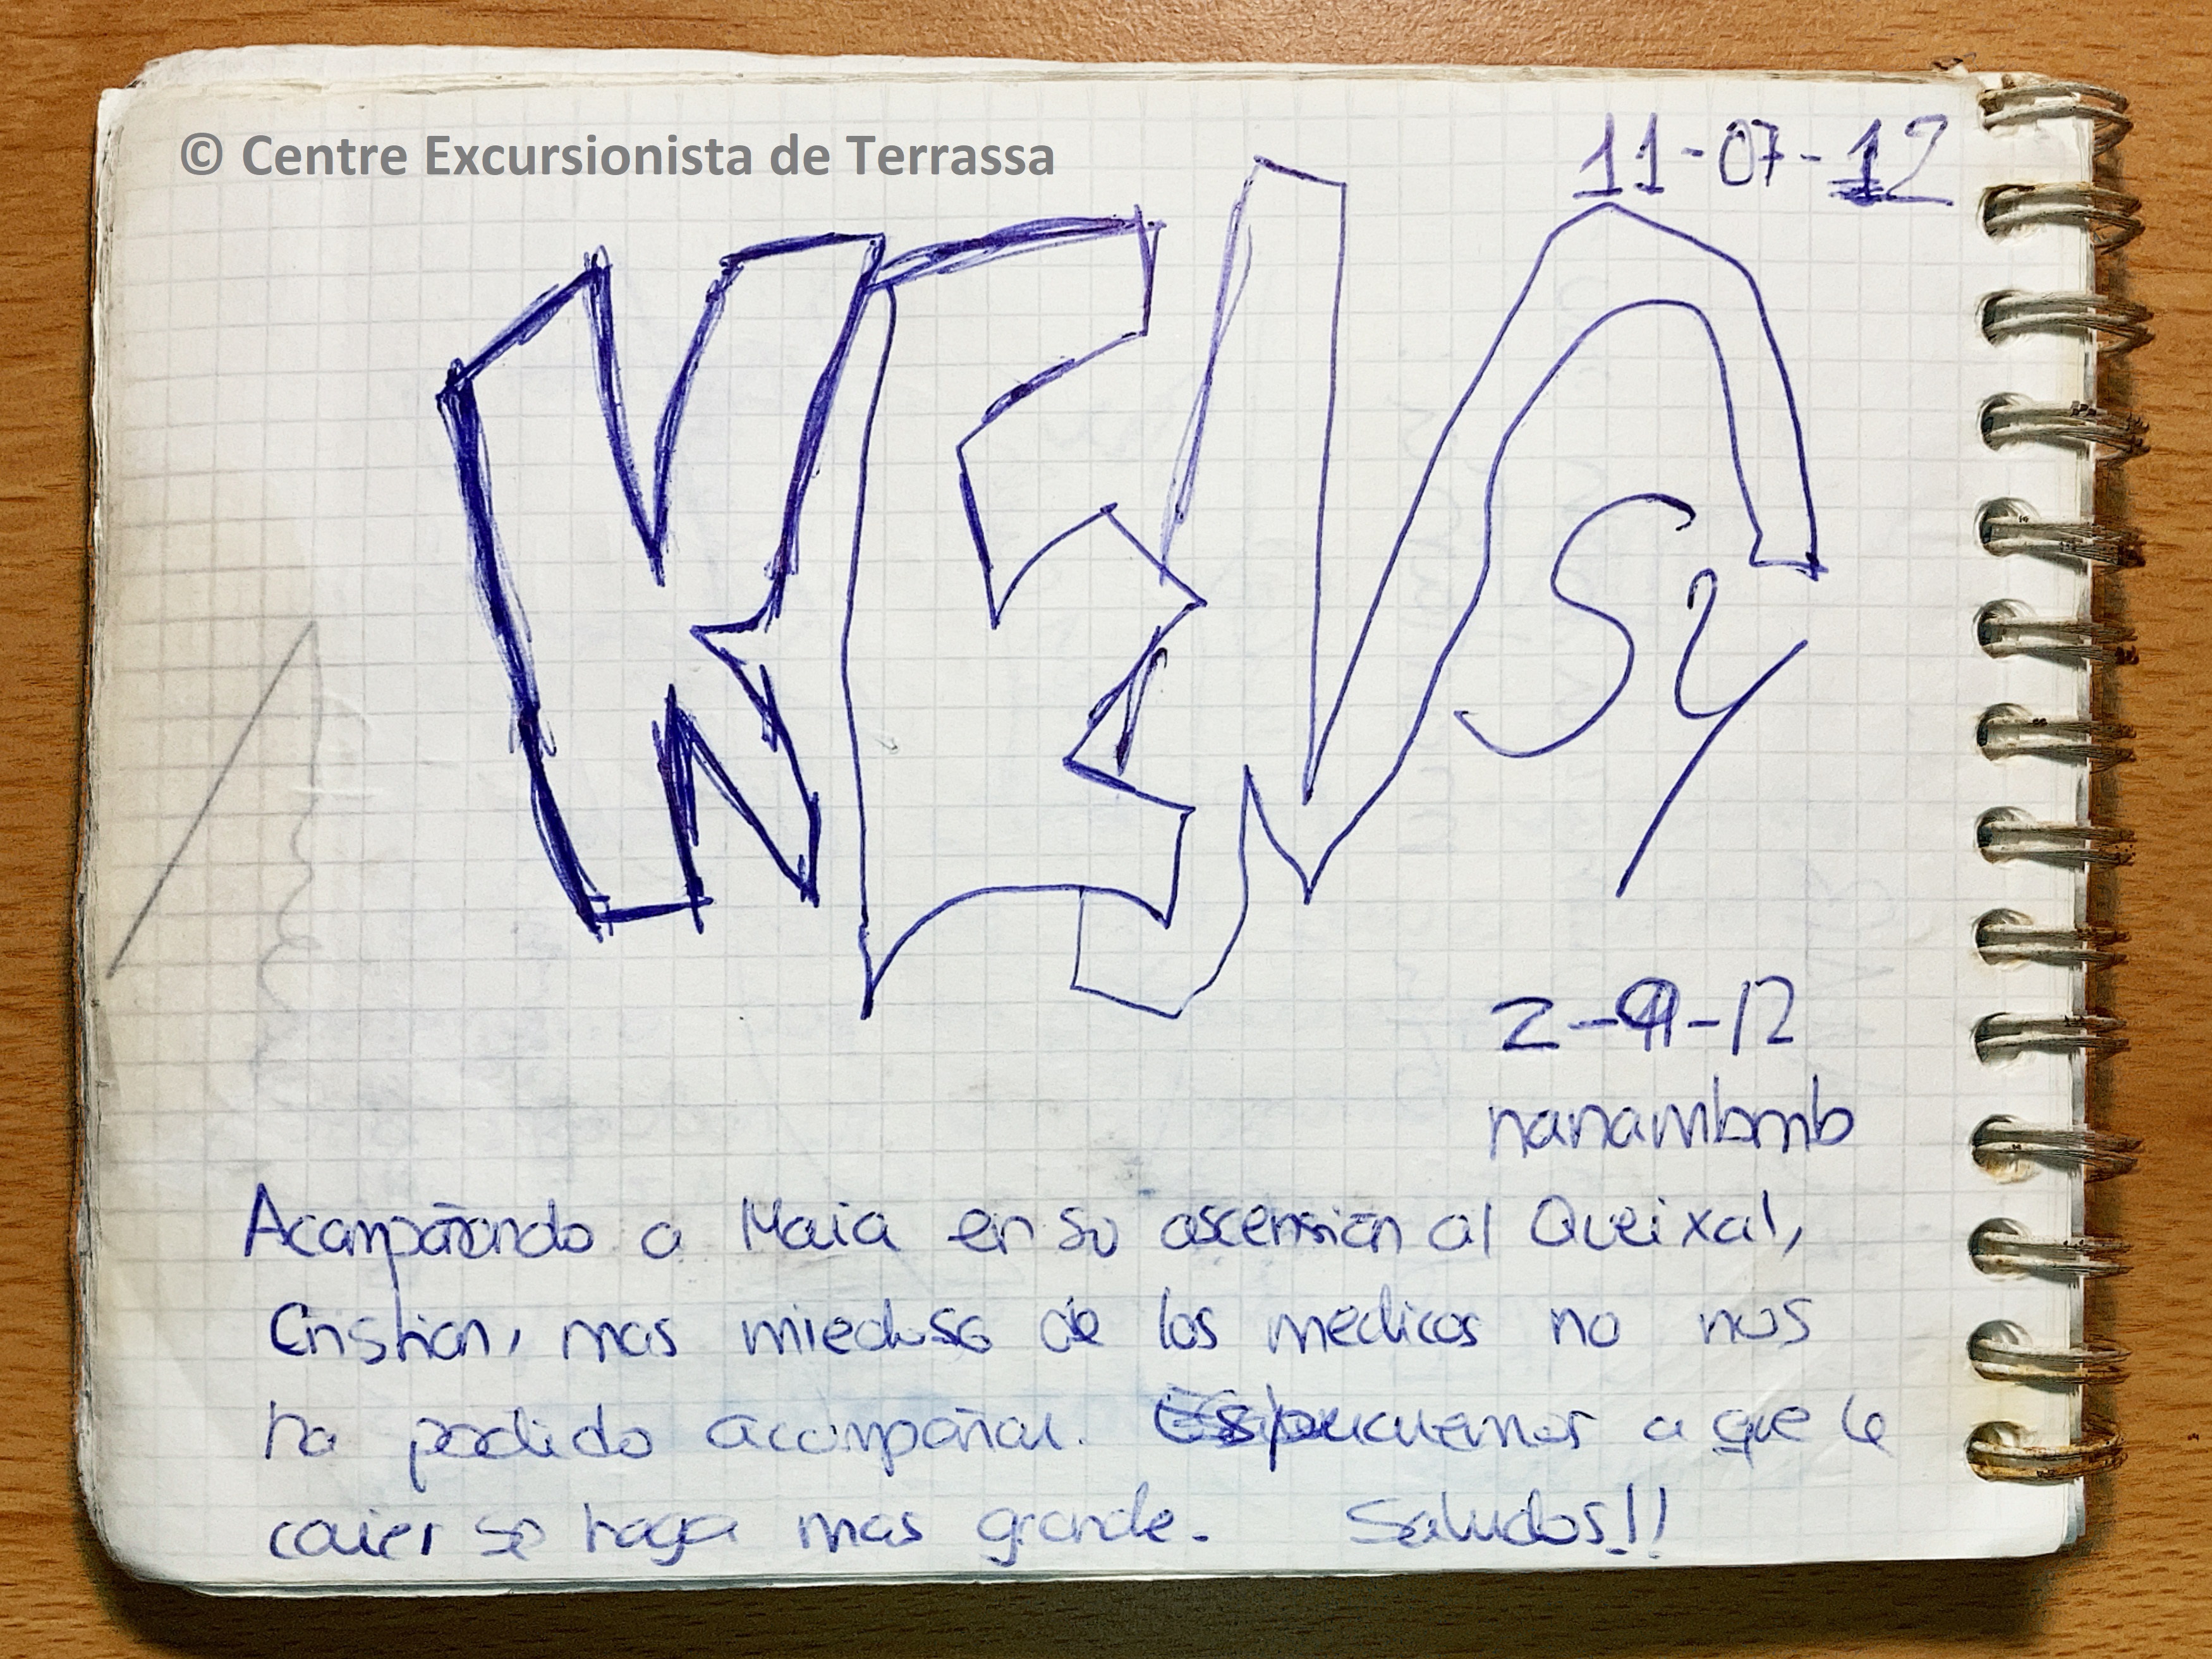 © Centre Excursionista de Terrassa
11-07-12
Sy
2-9-12
Acompañando a Maia en su ascensión al Queixal,
Cristian, mas miedoso de los medicos no nos
ha podido acompañar. a que le
se haga mas grande. Saludos!!